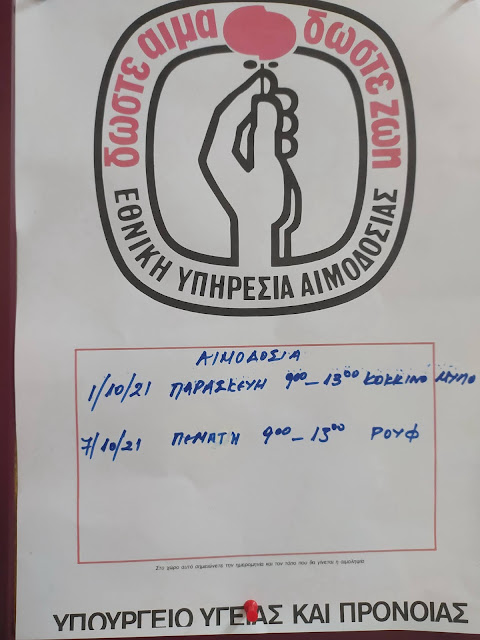 δωστε αιμα δωστε ζωη
ΕΘΝΙΚΗ ΥΠΗΡΕΣΙΑ ΑΙΜΟΔΟΣΙΑΣ
ΑΙΜΟΔΟΣΙΑ
1/10/21 ΠΑΡΑΣΚΕΥΗ 9⁰⁰ – 13⁰⁰ ΚΟΚΚΙΝΟ ΜΥΛΟ
7/10/21 ΠΕΜΑΤΗ 9⁰⁰ – 13⁰⁰ ΡΟΥΦ
Στο χώρο αυτό σημειώνετε την ημερομηνία και τον τόπο που θα γίνεται η αιμοληψία
ΥΠΟΥΡΓΕΙΟ ΥΓΕΙΑΣ ΚΑΙ ΠΡΟΝΟΙΑΣ